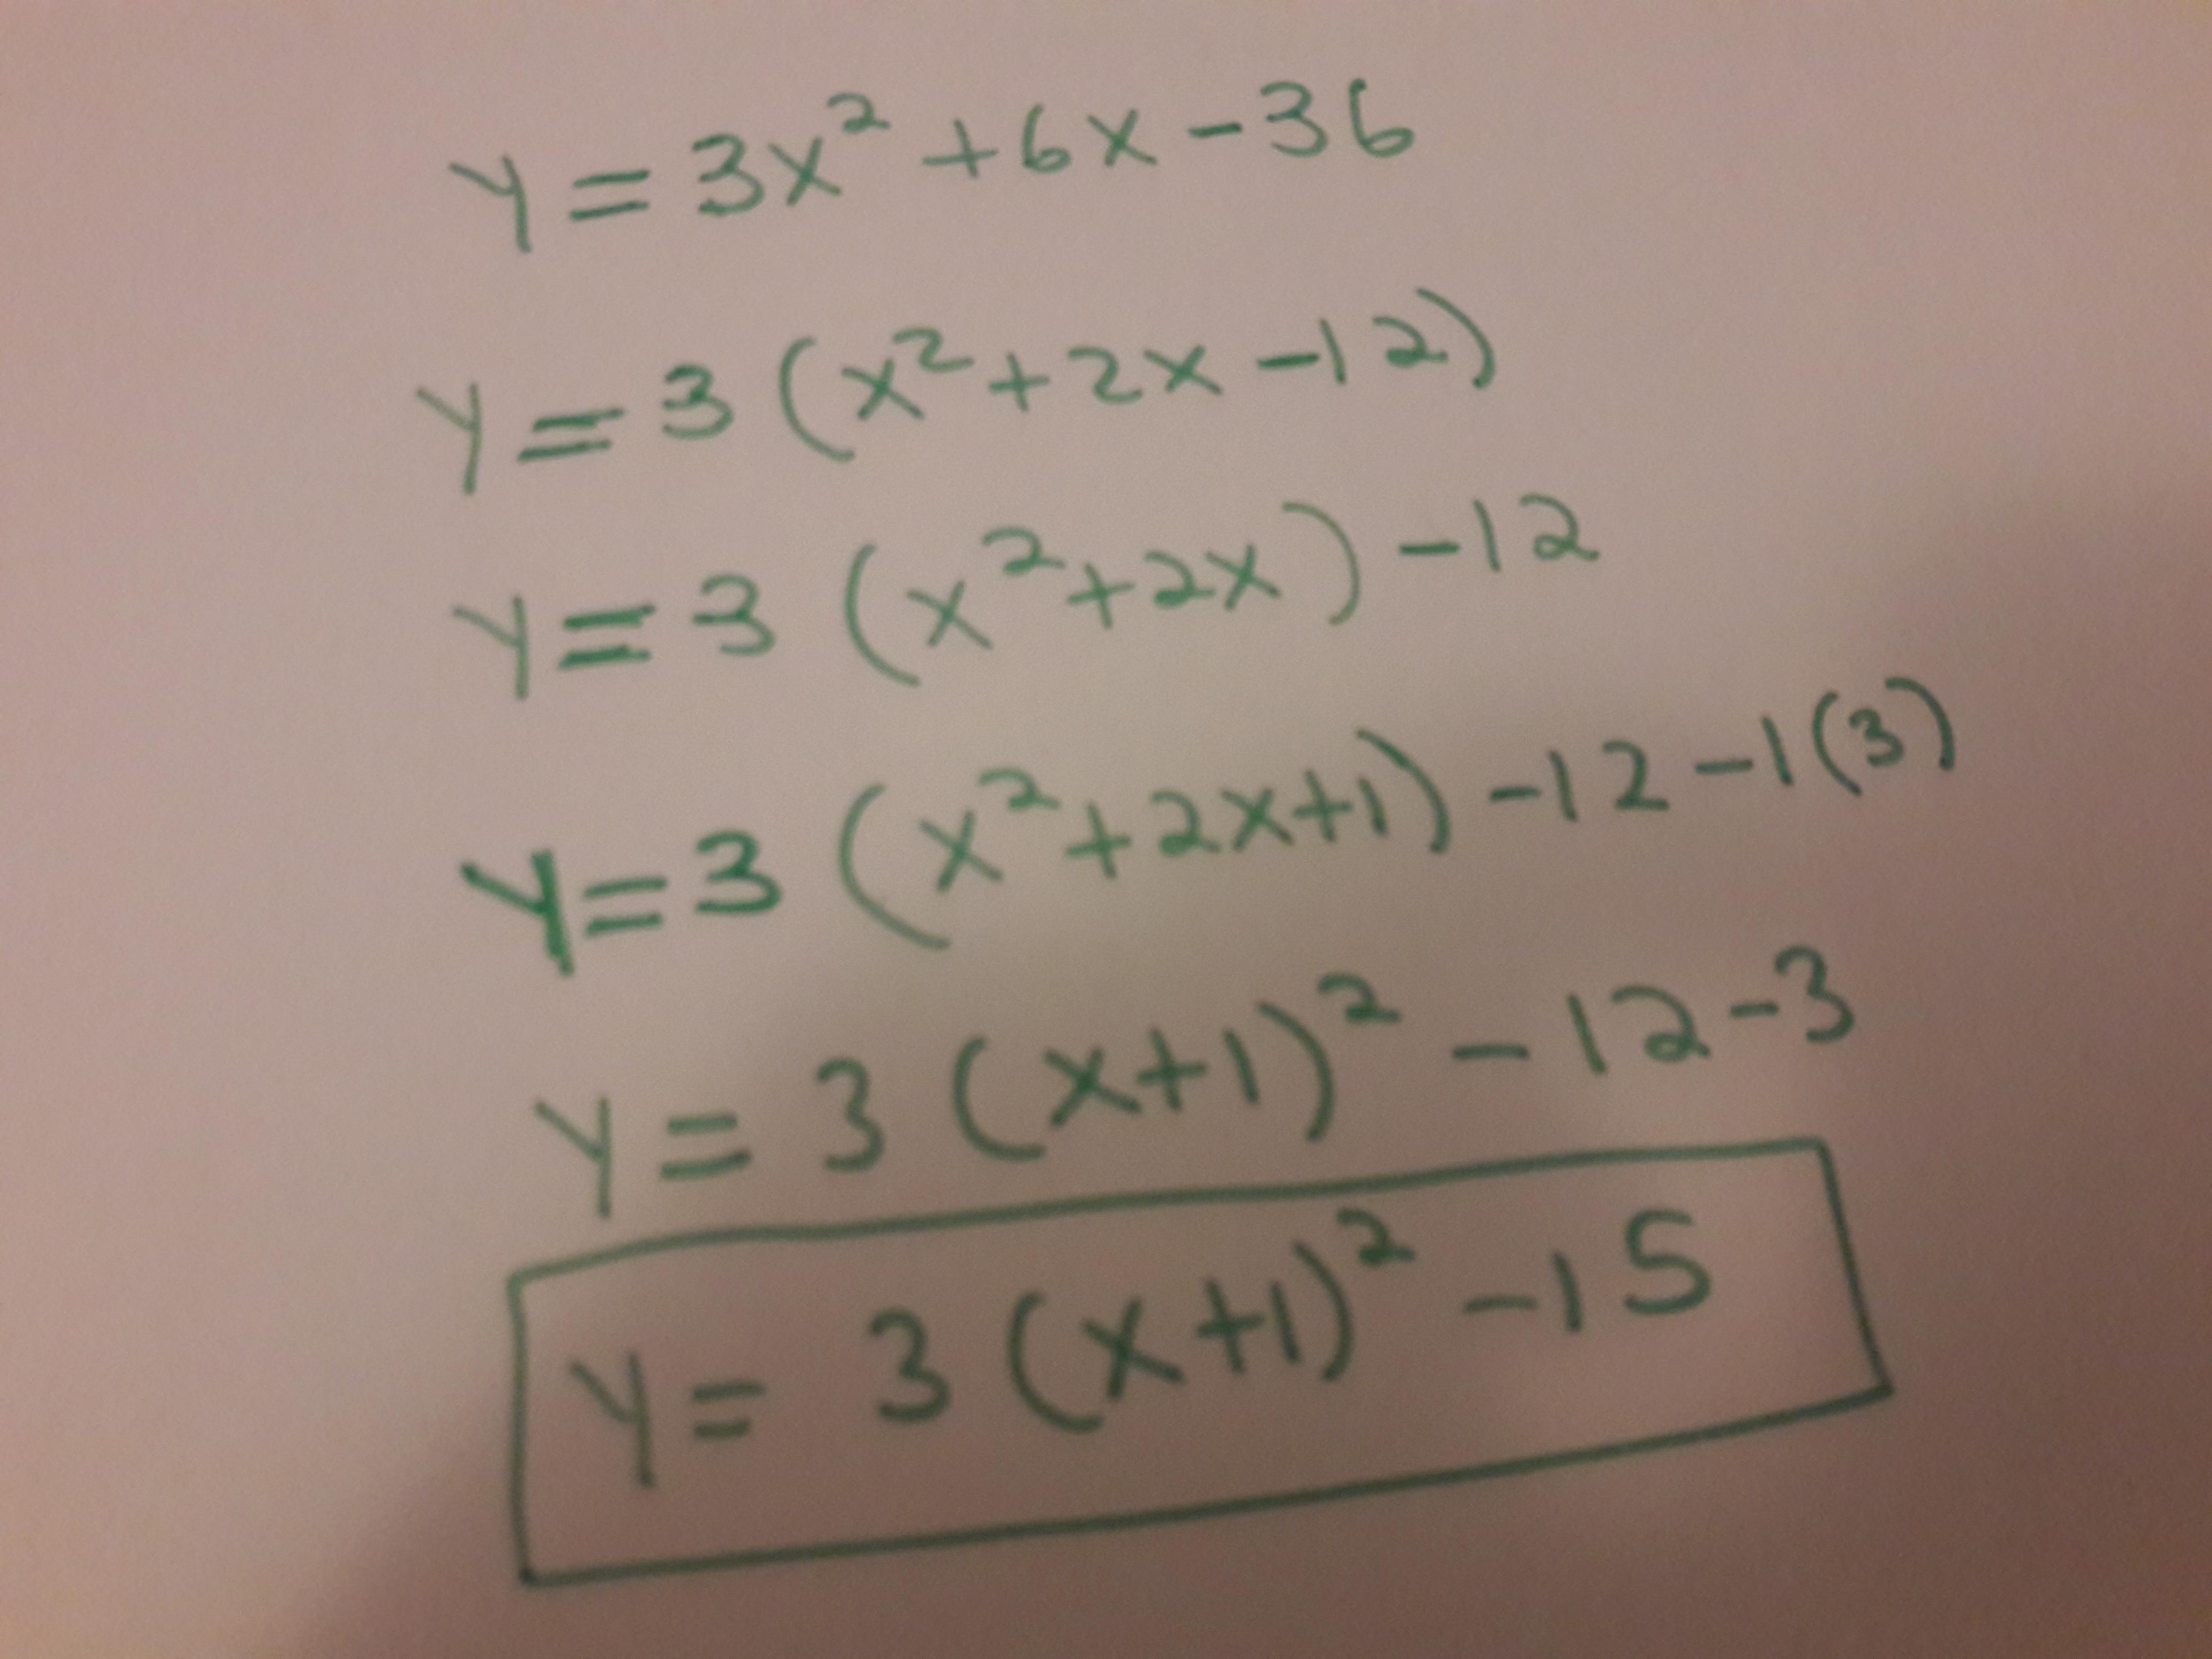 y = 3x² + 6x - 36
y = 3 (x² + 2x - 12)
y = 3 (x² + 2x) - 12
y = 3 (x² + 2x + 1) - 12 - 1(3)
y = 3 (x+1)² - 12 - 3
y = 3 (x+1)² - 15